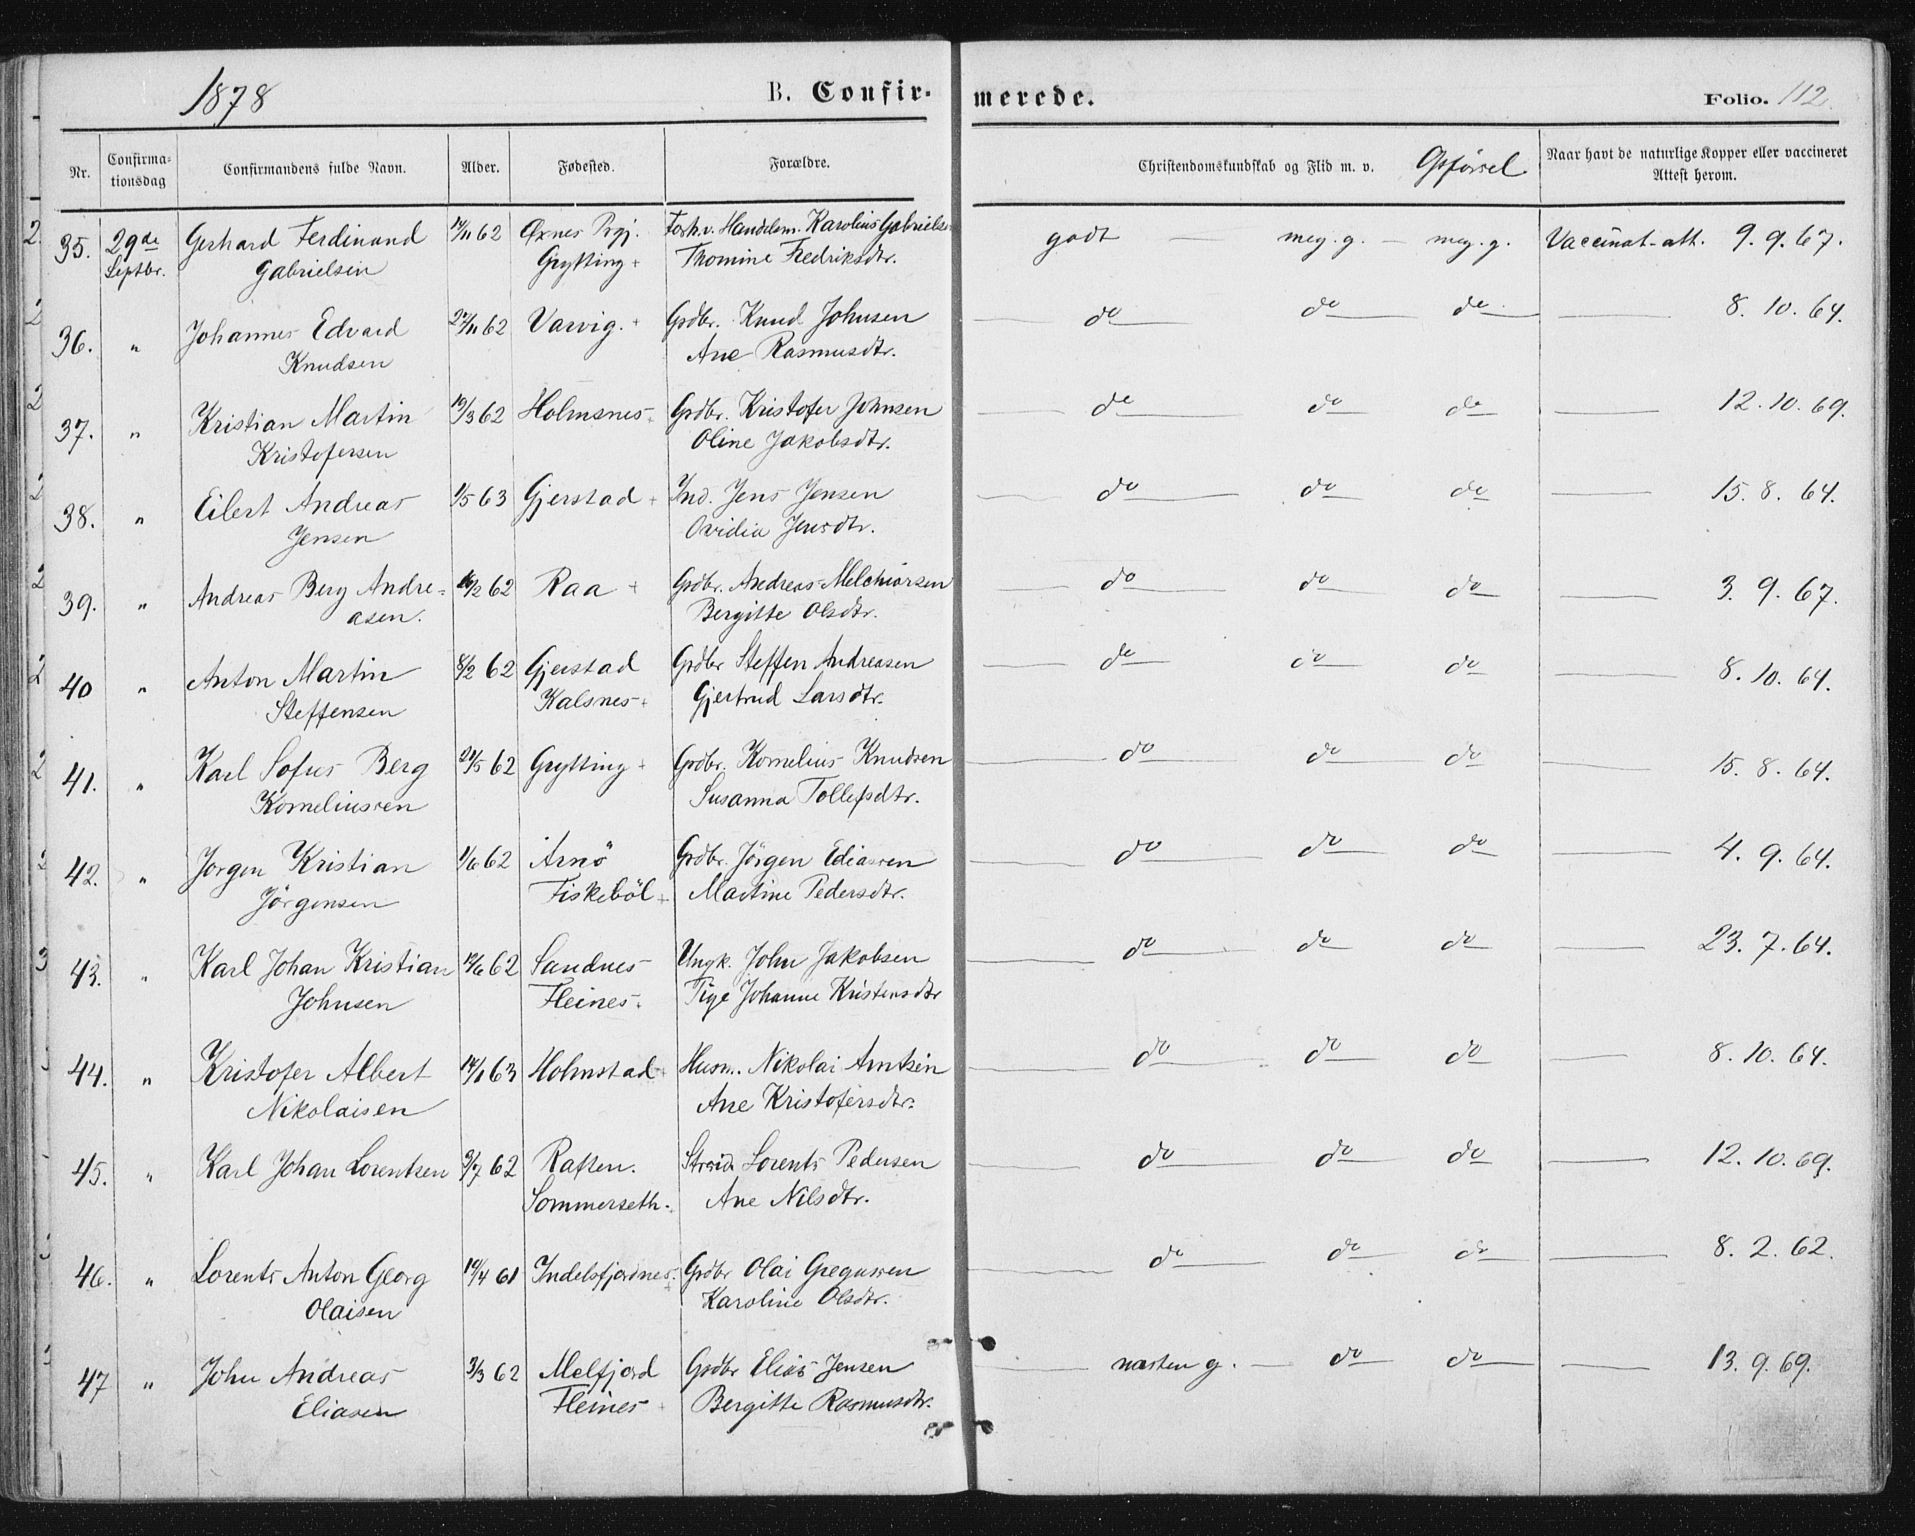 1878 B. Confir- merede. Folio. 112.
Nr. Confirma-tionsdag Confirmandens fulde Navn. Alder. Fødested. Forældre. Christendomskundskab og Flid m. v. Opførsel Naar havt de naturlige Kopper eller vaccineret Attest herom.
35. 29de Septbr. Gerhard Ferdinand 62 Øxnes Prgj. Forh.v. Handelsm. Karolius Gabrielsen godt — meg. g. — meg. g. Vaccinat. att. 9. 9. 67.
Gabrielsen Grytting + Thomine Fredriksdtr.
36. " Johannes Edvard 62 Varvig. + Grdbr. Knud Johnsen do do do 8. 10. 64.
Knudsen Ane Rasmusdtr.
37. " Kristian Martin 62 Holmsnes Grdbr. Kristofer Johnsen do do do 12. 10. 69.
Kristofersen Oline Jakobsdtr.
38. " Eilert Andreas 1/5 63 Gjerstad + Ind. Jens Jensen do do do 15. 8. 64.
Jensen Ovidia Jensdtr.
39. " Andreas Berg Andre= 62 Raa + Grdbr. Andreas Melchiorsen do do do 3. 9. 67.
asen. Bergitte Olsdtr.
40 " Anton Martin 8/2 62 Gjerstad Grdbr Steffen Andreasen do do do 8. 10. 64.
Steffensen Kalsnes + Gjertrud Larsdtr.
41. " Karl Sofus Berg 62 Grytting + Grdbr. Kornelius Knudsen do do do 15. 8. 64.
Korneliussen Susanna Tollefsdtr.
42. " Jørgen Kristian 1/6 62 Arnö Grdbr. Jörgen Ediassen do do do 4. 9. 64.
Jörgensen Fiskeböl + Martine Pedersdtr.
43. " Karl Johan Kristian 62 Sandnes Ungk. John Jakobsen do do do 23. 7. 64.
Johnsen Fleines. Pige Johanne Kristensdtr
44. " Kristofer Albert 14/1 63 Holmstad + Husm. Nikolai Arntsen do do do 8. 10. 64.
Nikolaisen Ane Kristofersdtr.
45. " Karl Johan Lorentsen 9/7 62 Raften. Lorents Pedersen do do do 12. 10. 69.
Sommerseth. Ane Nilsdtr.
46. " Lorents Anton Georg 19/4 61 Indelsfjordnes. Grdbr Olai Gregussen do do do 8. 2. 62.
Olaisen + Karoline Olsdtr.
47 " John Andreas 3/3 62 Melfjord Grdbr Elias Jensen næsten g. — do do 13. 9. 69.
Eliasen Fleines Bergitte Rasmusdtr.